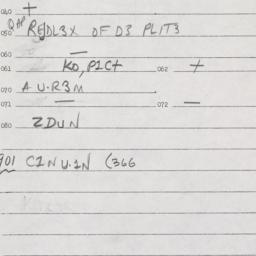 040 +
050 REDL3X OF D3 PLIT3
060 —
061 KO, P1C+ 062 +
070 A U.R3M
071 — 072 —
080 ZDUN
901 C1N U.1N (366